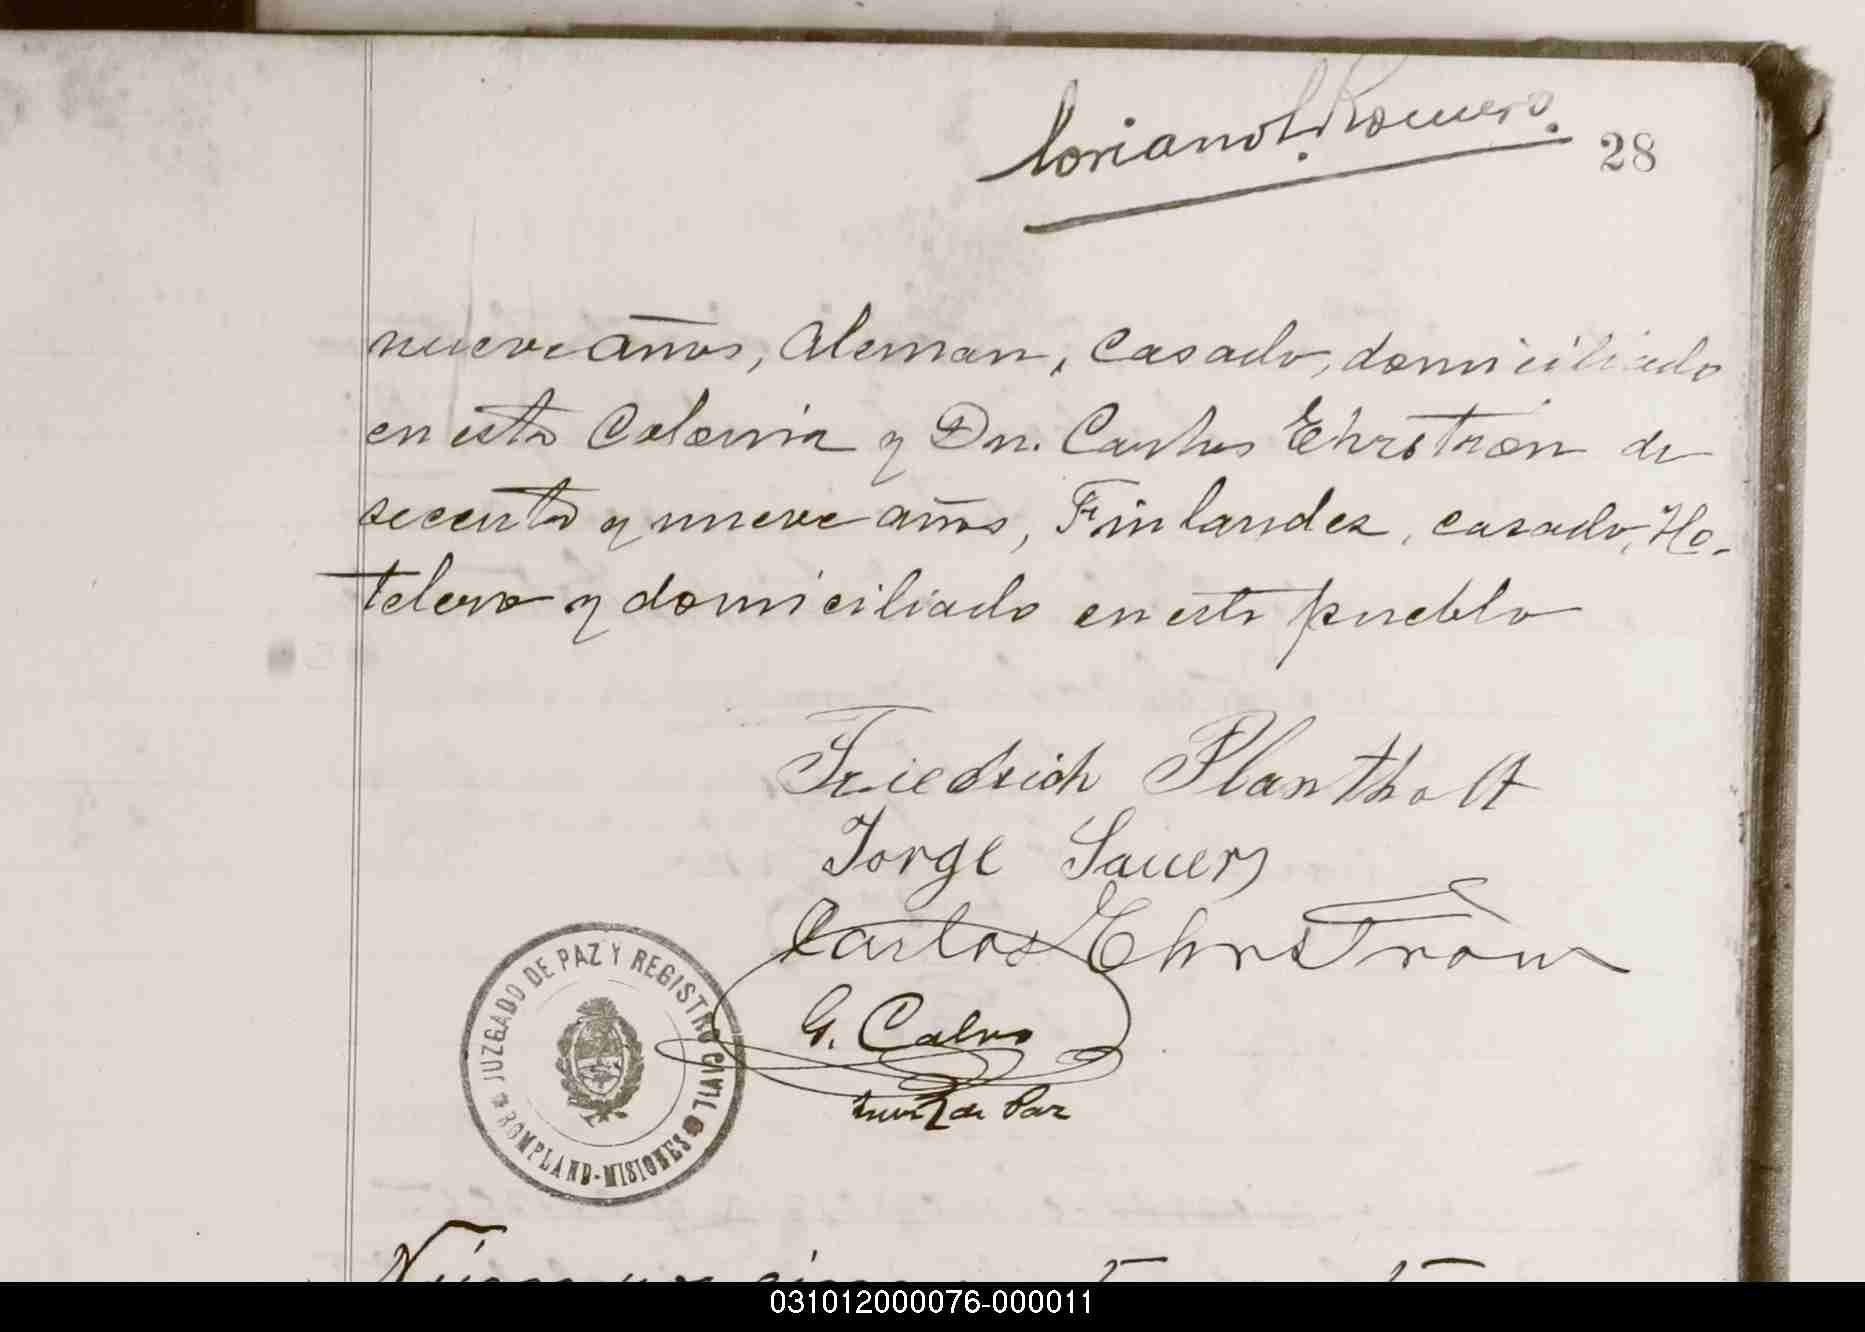 Coriano L. Romero.
28
nueve años, Aleman, casado, domiciliado
en esta Colonia y Dn. Carlos Ehrström de
secenta y nueve años, Finlandez, casado, Ho-
telero y domiciliado en este pueblo
Friedrich Plantholt
Jorge Sauer
Carlos Ehrström
G. Calvo
Juez de Paz
JUZGADO DE PAZ Y REGISTRO CIVIL
BOMPLAND-MISIONES
031012000076-000011